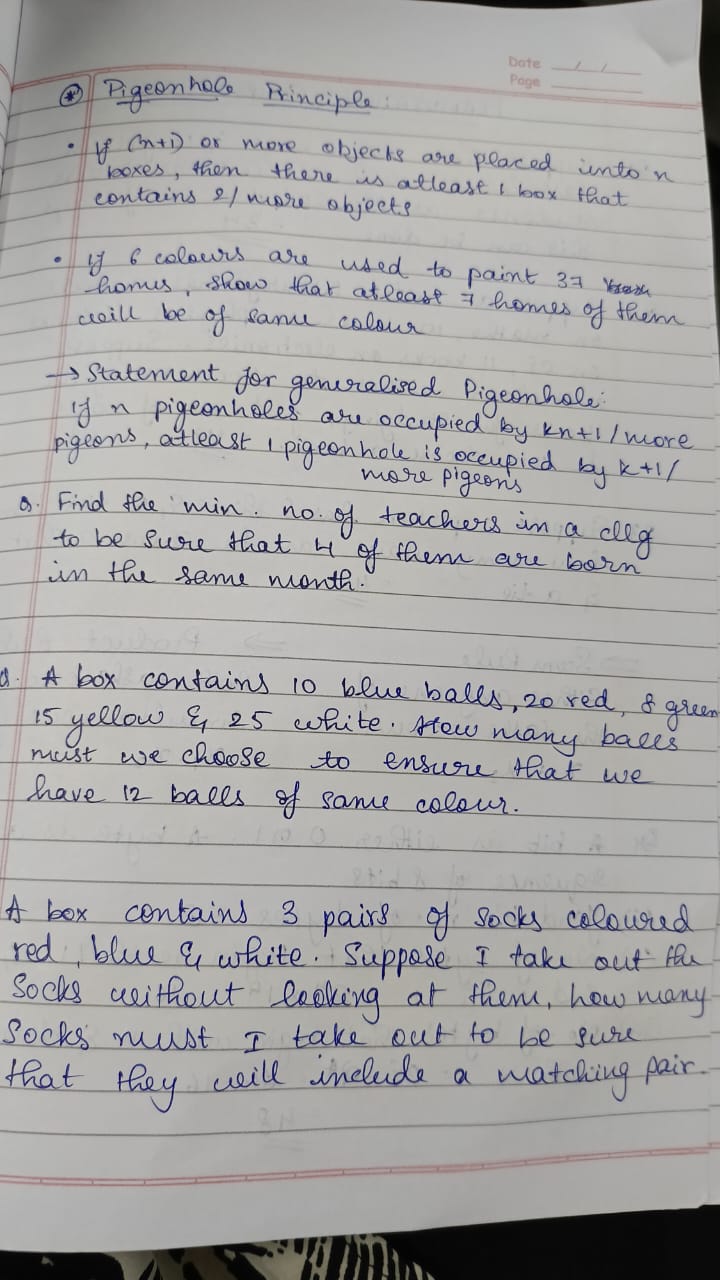 Date __/__/__
Page
⊛ Pigeonhole Principle :
• If (n+1) or more objects are placed into n
boxes, then there is atleast 1 box that
contains 2/ more objects
• if 6 colours are used to paint 37
homes, show that atleast 7 homes of them
will be of same colour
→ Statement for generalised Pigeonhole:
if n pigeonholes are occupied by kn+1/more
pigeons, atleast 1 pigeonhole is occupied by k+1/
more pigeons
Q. Find the min. no. of teachers in a clg
to be sure that 4 of them are born
in the same month.
Q. A box contains 10 blue balls, 20 red, 8 green
15 yellow & 25 white. How many balls
must we choose to ensure that we
have 12 balls of same colour.
A box contains 3 pairs of socks coloured
red, blue & white. Suppose I take out the
Socks without looking at them, how many
Socks must I take out to be sure
that they will include a matching pair.